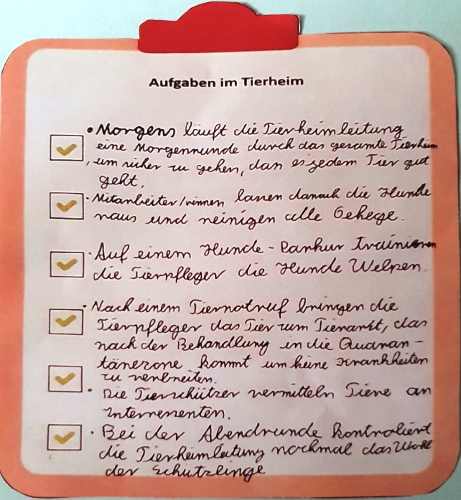 Aufgaben im Tierheim
• Morgens läuft die Tierheimleitung
eine Morgenrunde durch das gesamte Tierheim
, um sicher zu gehen, das es jedem Tier gut
geht.
• Mitarbeiter/innen lassen danach die Hunde
raus und reinigen alle Gehege.
• Auf einem Hunde-Parkur trainieren
die Tierpfleger die Hunde Welpen.
• Nach einem Tiernotruf bringen die
Tierpfleger das Tier zum Tierarkt, das
nach der Behandlung in die Quaran-
tänezone kommt um keine Krankheiten
zu verbreiten.
• Die Tierschützer vermitteln Tiere an
Interresenten.
• Bei der Abendrunde kontroliert
die Tierheimleitung nochmal das Wohl
der Schutzlinge